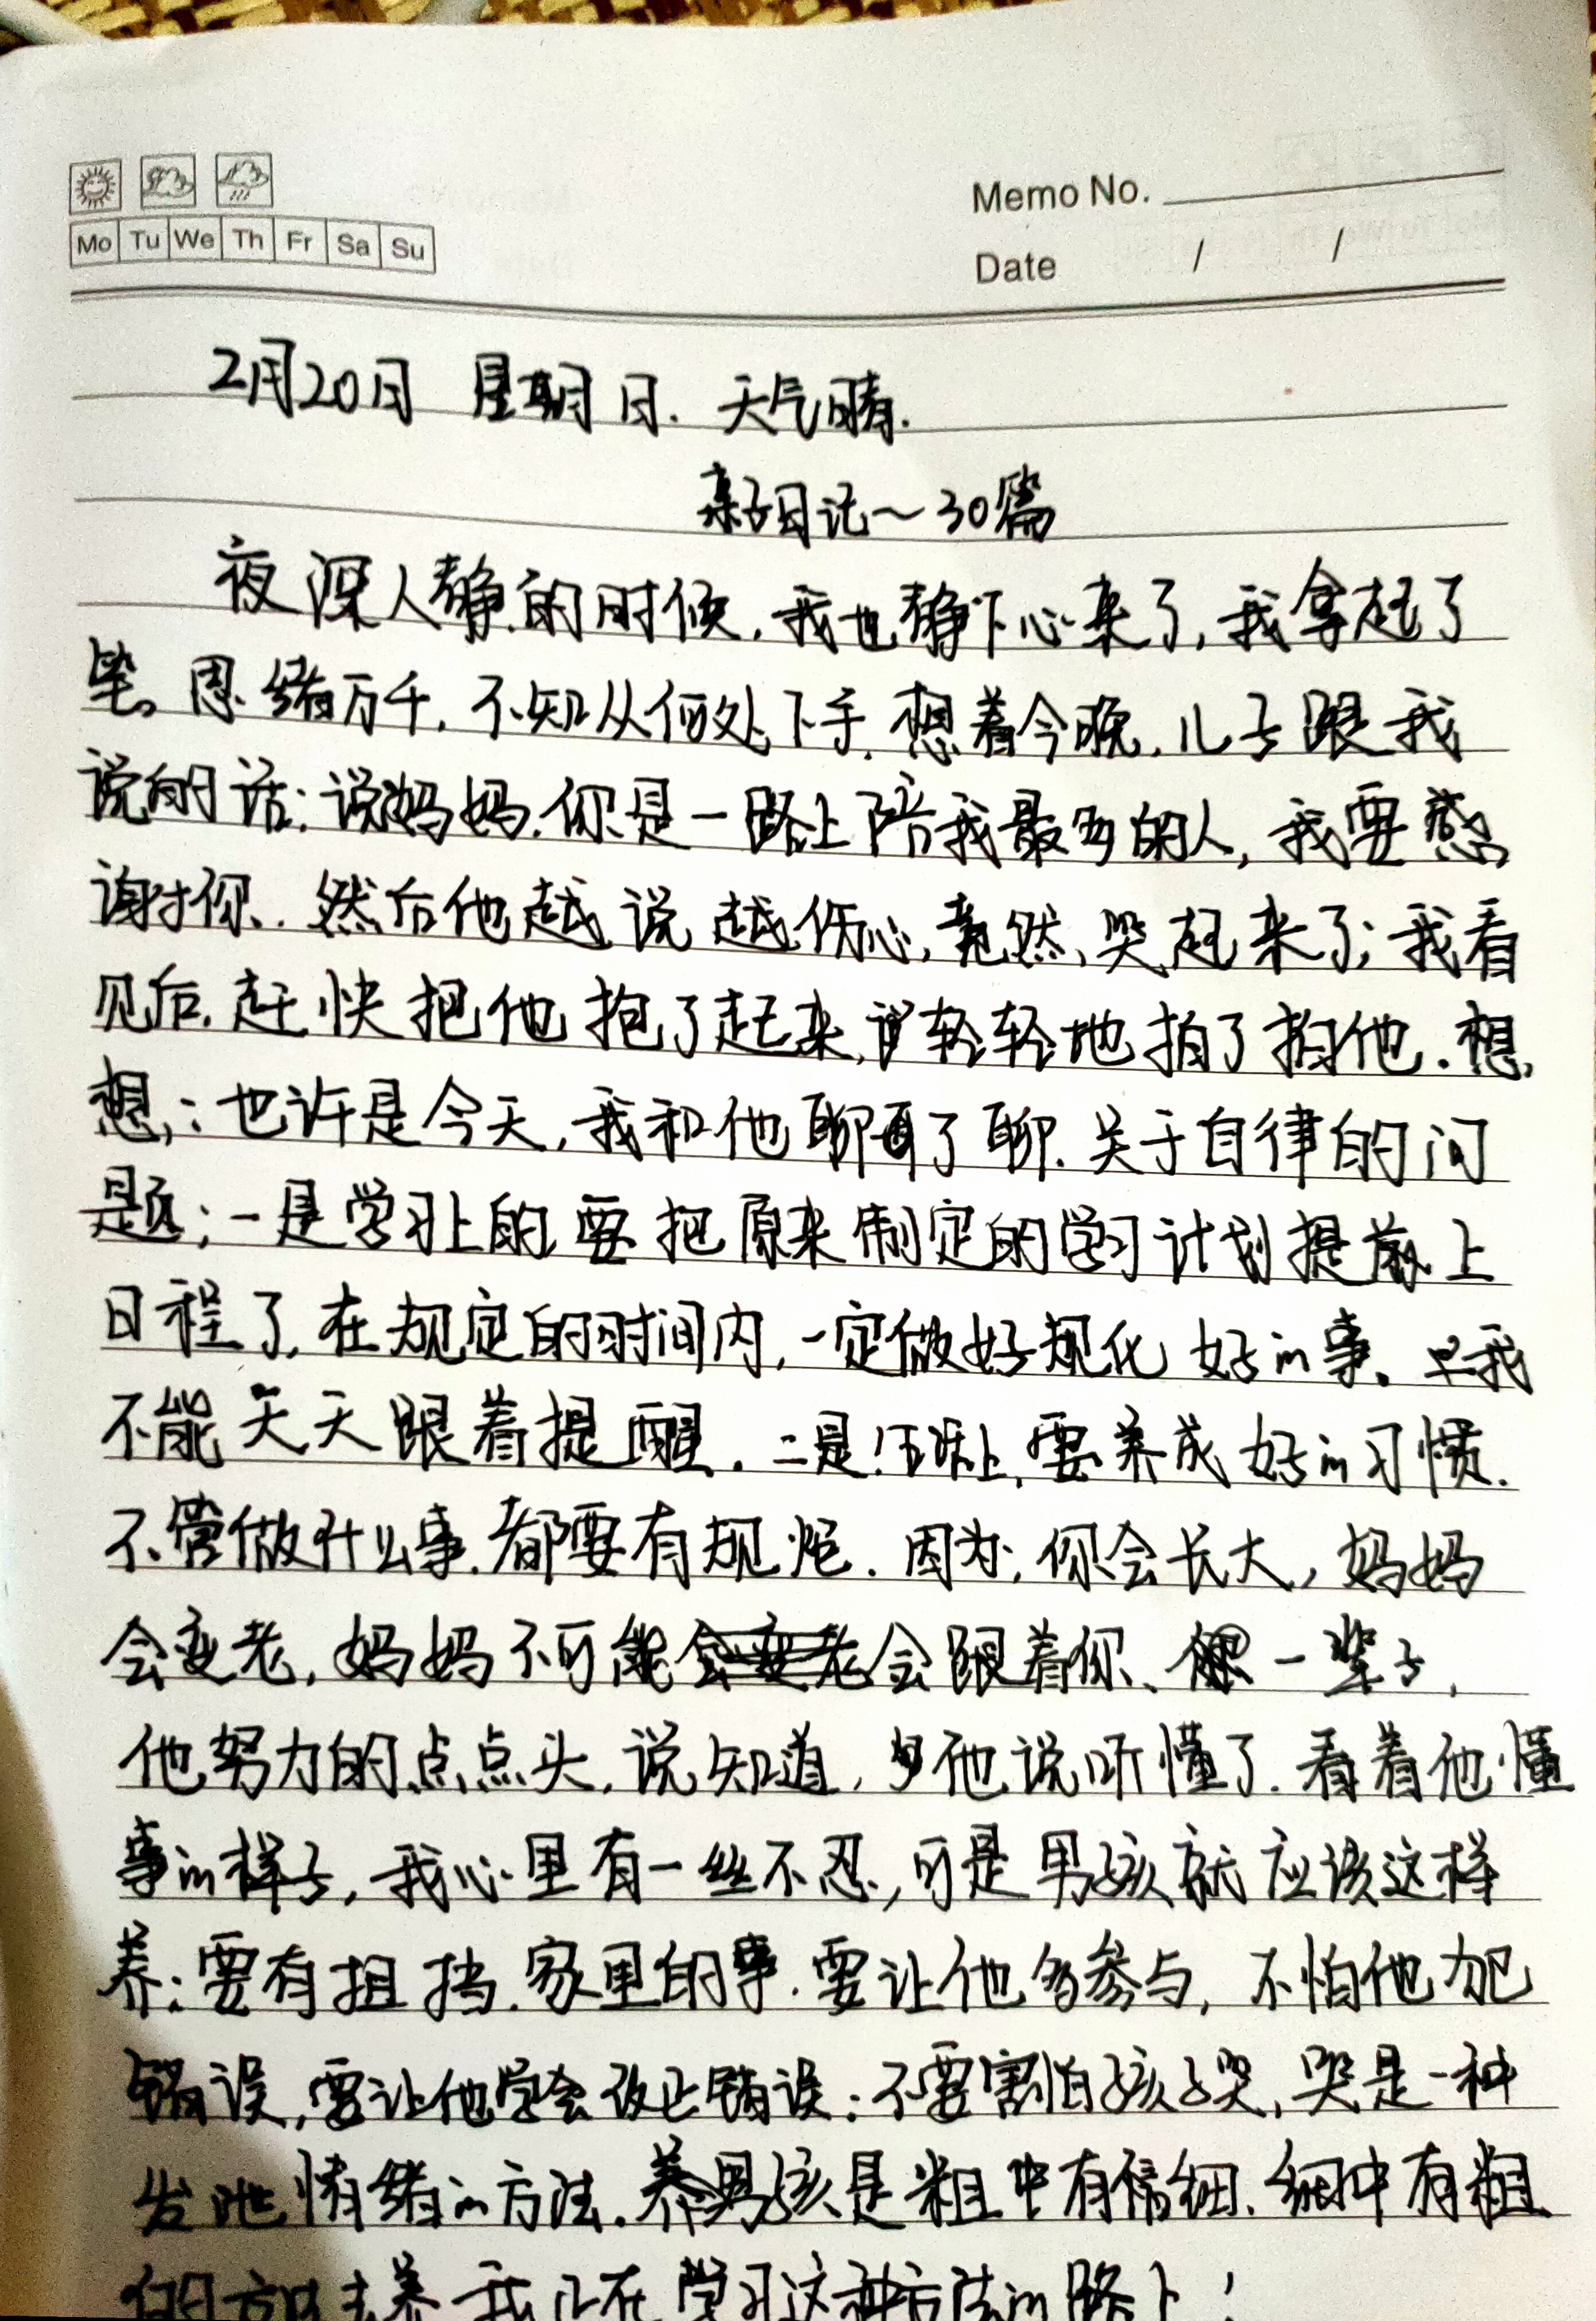 Memo No.
Mo Tu We Th Fr Sa Su
Date / /
2月20日 星期日. 天气晴.
亲子日记~30篇
夜深人静的时候,我也静下心来了,我拿起了
笔。思绪万千,不知从何处下手,想着今晚,儿子跟我
说的话:说妈妈,你是一路上陪我最多的人,我要感
谢你.然后他越说越伤心,竟然哭起来了;我看
见后,赶快把他抱了起来,轻轻地拍了拍他.想
想;:也许是今天,我和他聊了聊.关于自律的问
题;一是学习上的,要把原来制定的学习计划提前上
日程了,在规定的时间内,一定做好规化好的事。我
不能天天跟着提醒.二是生活上,要养成好的习惯.
不管做什么事.都要有规矩.因为,你会长大,妈妈
会变老,妈妈不可能会跟着你、一辈子,
他努力的点点头,说知道,他说听懂了.看着他懂
事的样子,我心里有一丝不忍,可是男孩就应该这样
养:要有担挡.家里的事.要让他多参与,不怕他犯
错误,要让他学会改正错误:不要害怕孩子哭,哭是一种
发泄情绪的方法.养男孩是粗中有细.细中有粗
的方法去养 我正在学习这种方法的路上!